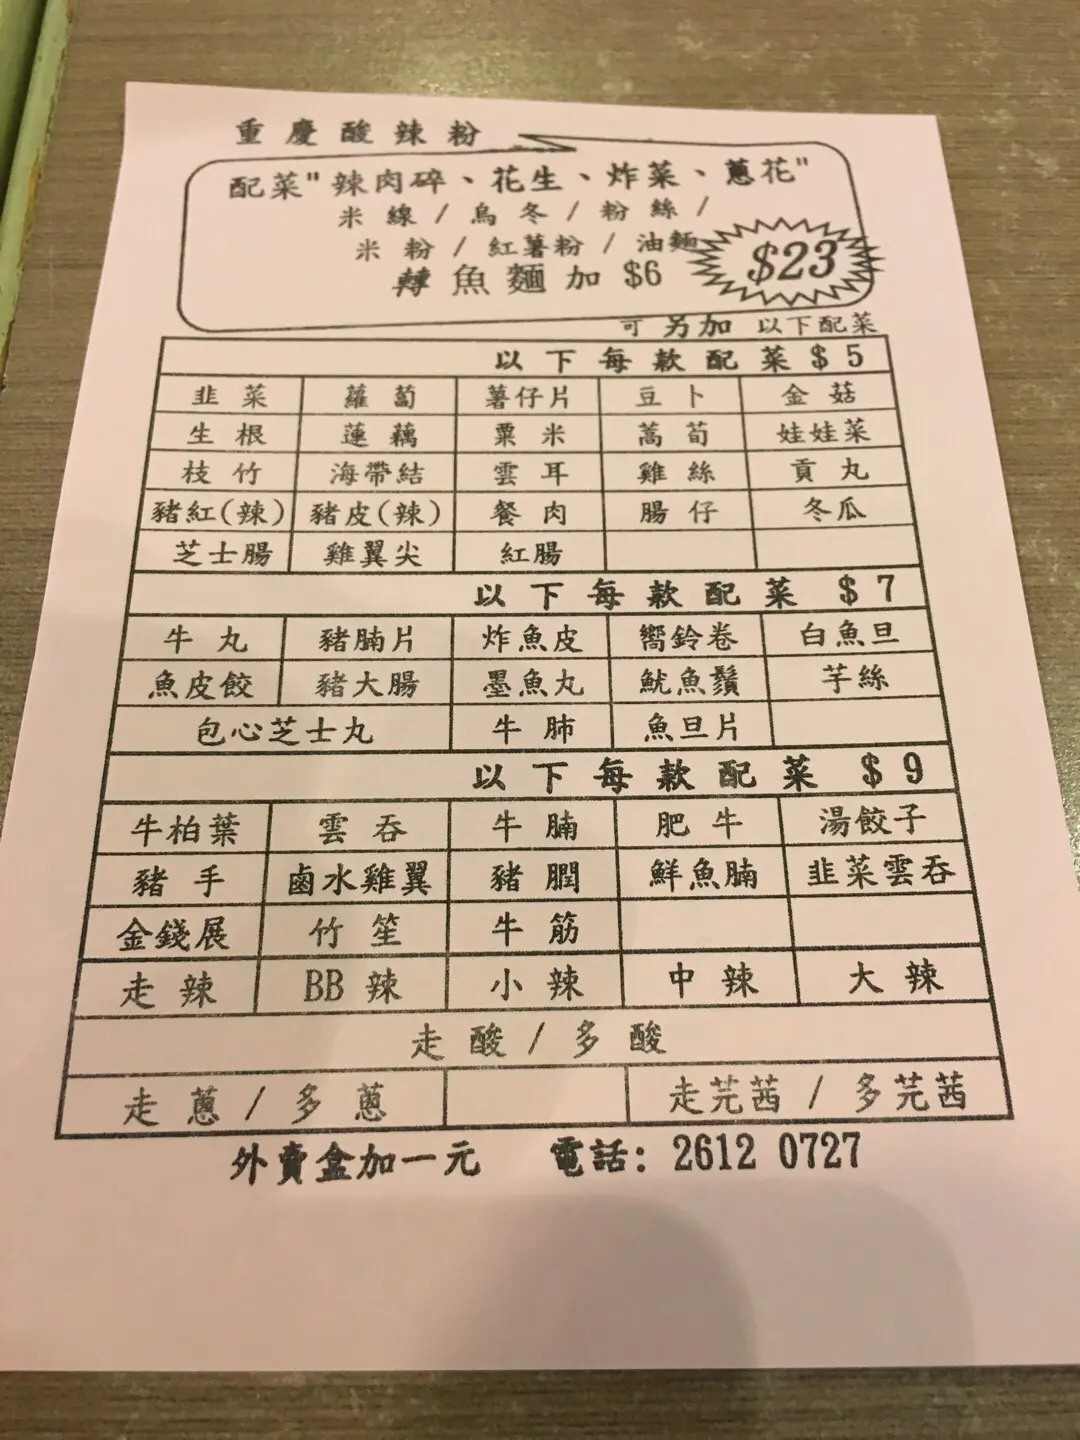 重慶酸辣粉
配菜"辣肉碎、花生、炸菜、蔥花"
米線/烏冬/粉絲/
米粉/紅薯粉/油麵
$23
轉魚麵加$6
可另加以下配菜
以下每款配菜$5
韭菜 蘿蔔 薯仔片 豆卜 金菇
生根 蓮藕 粟米 萵荀 娃娃菜
枝竹 海帶結 雲耳 雞絲 貢丸
豬紅(辣) 豬皮(辣) 餐肉 腸仔 冬瓜
芝士腸 雞翼尖 紅腸
以下每款配菜 $7
牛丸 豬腩片 炸魚皮 嚮鈴卷 白魚旦
魚皮餃 豬大腸 墨魚丸 魷魚鬚 芋絲
包心芝士丸 牛肺 魚旦片
以下每款配菜 $9
牛柏葉 雲吞 牛腩 肥牛 湯餃子
豬手 鹵水雞翼 豬膶 鮮魚腩 韭菜雲吞
金錢展 竹笙 牛筋
走辣 BB辣 小辣 中辣 大辣
走酸/多酸
走蔥/多蔥 走芫茜/多芫茜
外賣盒加一元 電話: 2612 0727